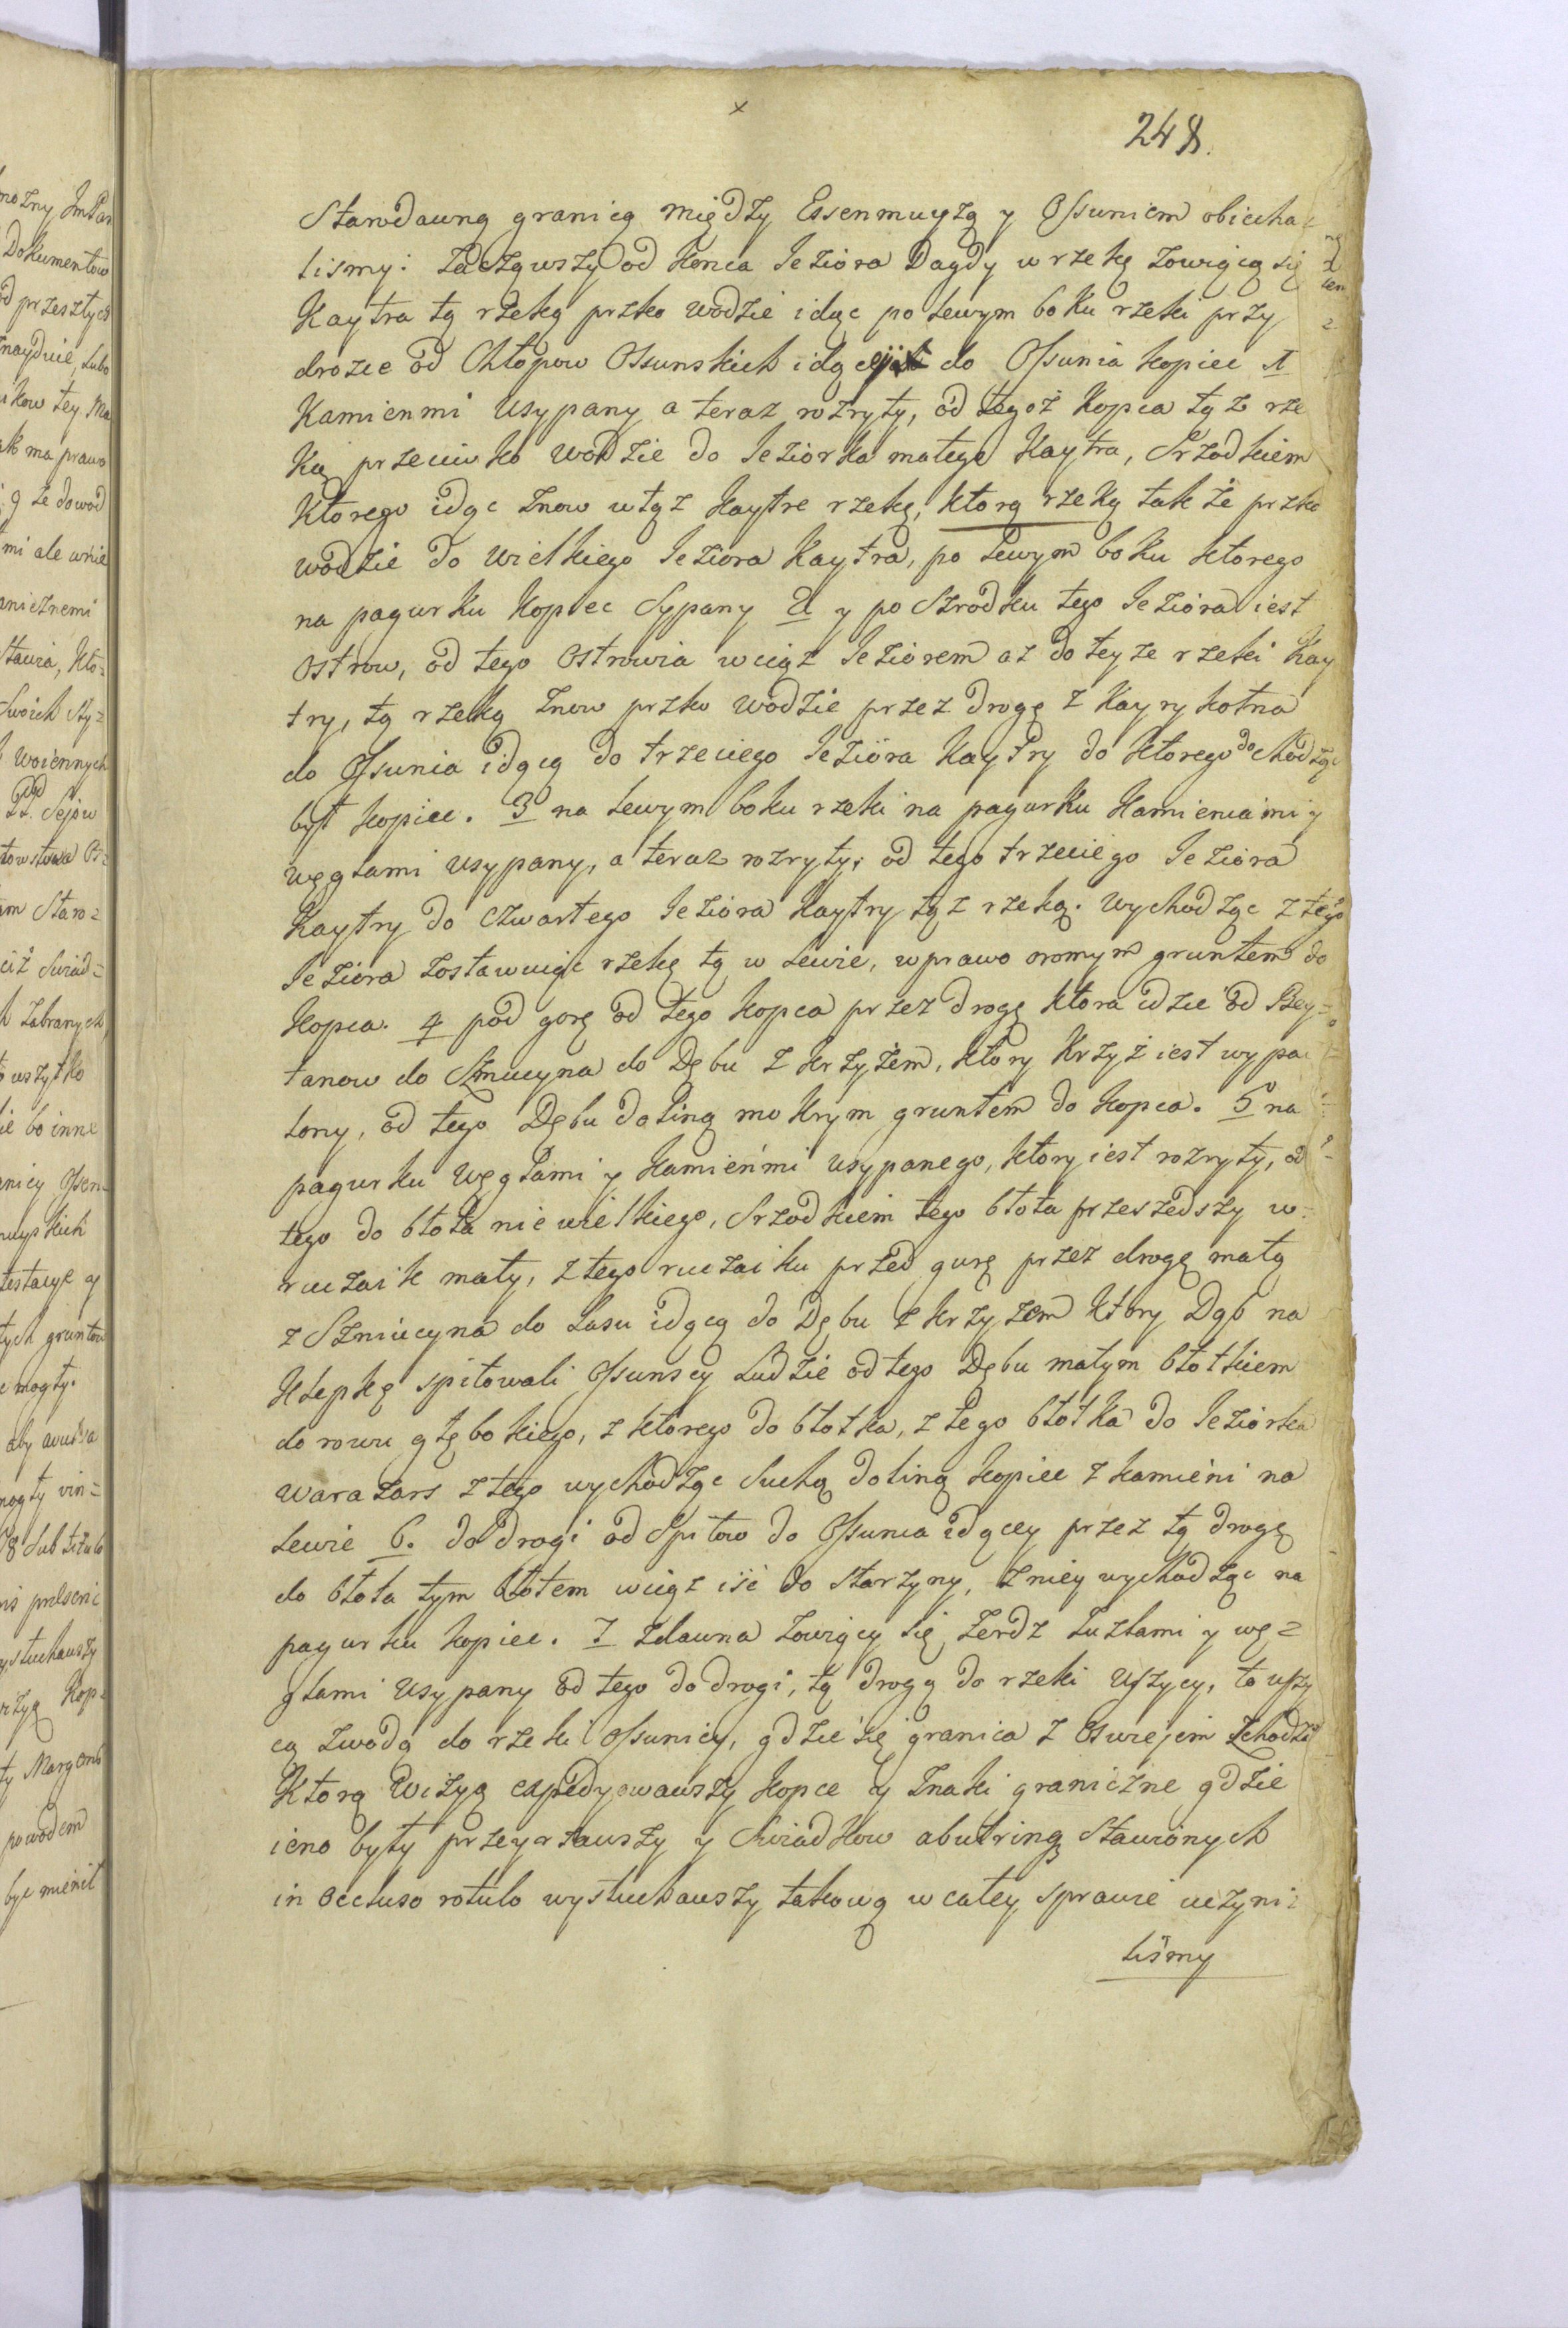 248.
Starodawną granicą między Essenmuyzą y Ossuniem obiecha
lismy: Zacząwszy od konca Jeziora Dagdy w rzekę zowiącą się
Kaytra tą rzeką przko wodzie idąc po lewym boku rzeki przy
drozce od Chłopow Ossunskich idącey do Ossunia kopiec 1
Kamienmi usypany a teraz rozryty, od tegoż Kopca tąż rze
ką przeciwko wodzie do Jeziorka małego Kaytra, Srzodkiem
Ktorego idąc znow w tąż kaytre rzekę, ktorą rzeką także przko
wodzie do wielkiego Jeziora Kaytra, po lewym boku ktorego
na pagurku Kopiec Sypany 2 y po Szrodku tego Jeziora iest
ostrow, od tego Ostrowia wciąż Jeziorem aż do teyże rzeki Kay
try, tą rzeką znow przko wodzie przez drogę z Kayrykotna
do Ossunia idącą do trzeciego Jeziora Kaytry do ktorego dochodząc
był kopiec. 3 na lewym boku rzeki na pagurku Kamieniami y
węglami usypany, a teraz rozryty, od tego trzeciego Jeziora
Kaytry do czwartego Jeziora Kaytry tąż rzeką. Wychodząc z tego
Jeziora zostawuiąc rzekę tą w lewie, w prawo oromym gruntem do
Kopca. 4 pod gorę od tego kopca przez drogę ktora idzie od Bey=
tanow do Szmucyna do Dębu z krzyżem, ktory Krzyż iest wypa
lony, od tego Dębu doliną mokrym gruntem do kopca. 5 na
pagurku węglami y kamieńmi usypanego, ktory iest rozryty, od
tego do błota niewielkiego, Srzodkiem tego błota przeszedszy w
ruczaik mały, z tego ruczaiku przed gurę przez drogę małą
z Szniucyna do Lasu idącą do Dębu z krzyżem ktory Dąb na
Klepkę spiłowali Ossunscy Ludzie od tego Dębu małym błotkiem
do rowu głębokiego, z ktorego do błotka, z tego błotka do Jeziorka
Warazars z tego wychodząc Suchą doliną kopiec z kamieni na
lewie 6. do drogi od Spitow do Ossunia idącey przez tą drogę
do błota tym błotem wciąż iść do Starzyny, z niey wychodząc na
pagurku kopiec. 7 zdawna zowiący się Zerdz Luzłami y wę=
glami usypany od tego do drogi, tą drogą do rzeki Uszycy, ta uszy
cą zwodą do rzeki Ossunicy, gdzie się granica z Oswejem zchodzi
Ktorą Wizyą expedyowawszy kopce y znaki graniczne gdzie
ieno były przeyrzawszy y Swiadkow abutring Stawionych
in occluso rotulo wysłuchawszy takową w całey sprawie uczyni
liśmy